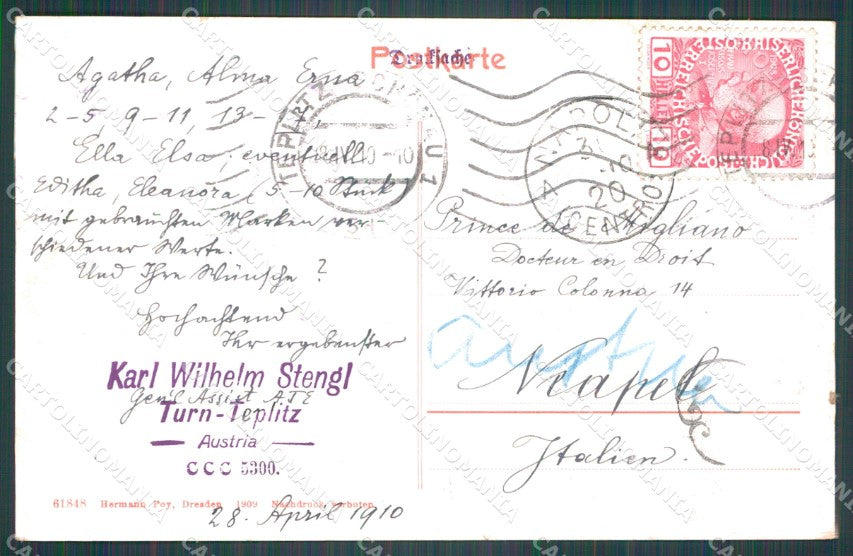 Postkarte
Drucksache
Agatha, Alma Erna
2-5, 9-11, 13-
Ella Elsa, eventuell
Editha, Eleanora, 5-10 Stück
mit gebrauchten Marken ver-
schiedener Werte.
Und Ihre Wünsche?
Hochachtend
Ihr ergebenster
Karl Wilhelm Stengl
Gen'l Assist A.T.E
Turn-Teplitz
Austria
CCC 5300.
61848 Hermann Poy, Dresden 1909 Nachdruck verboten.
28. April 1910
10 HELLER 10
TEPLITZ
NAPOLI
20
Prince de
Docteur en Droit
Vittorio Colonna 14
Neapel
Italien.
CARTOLINOMANIA